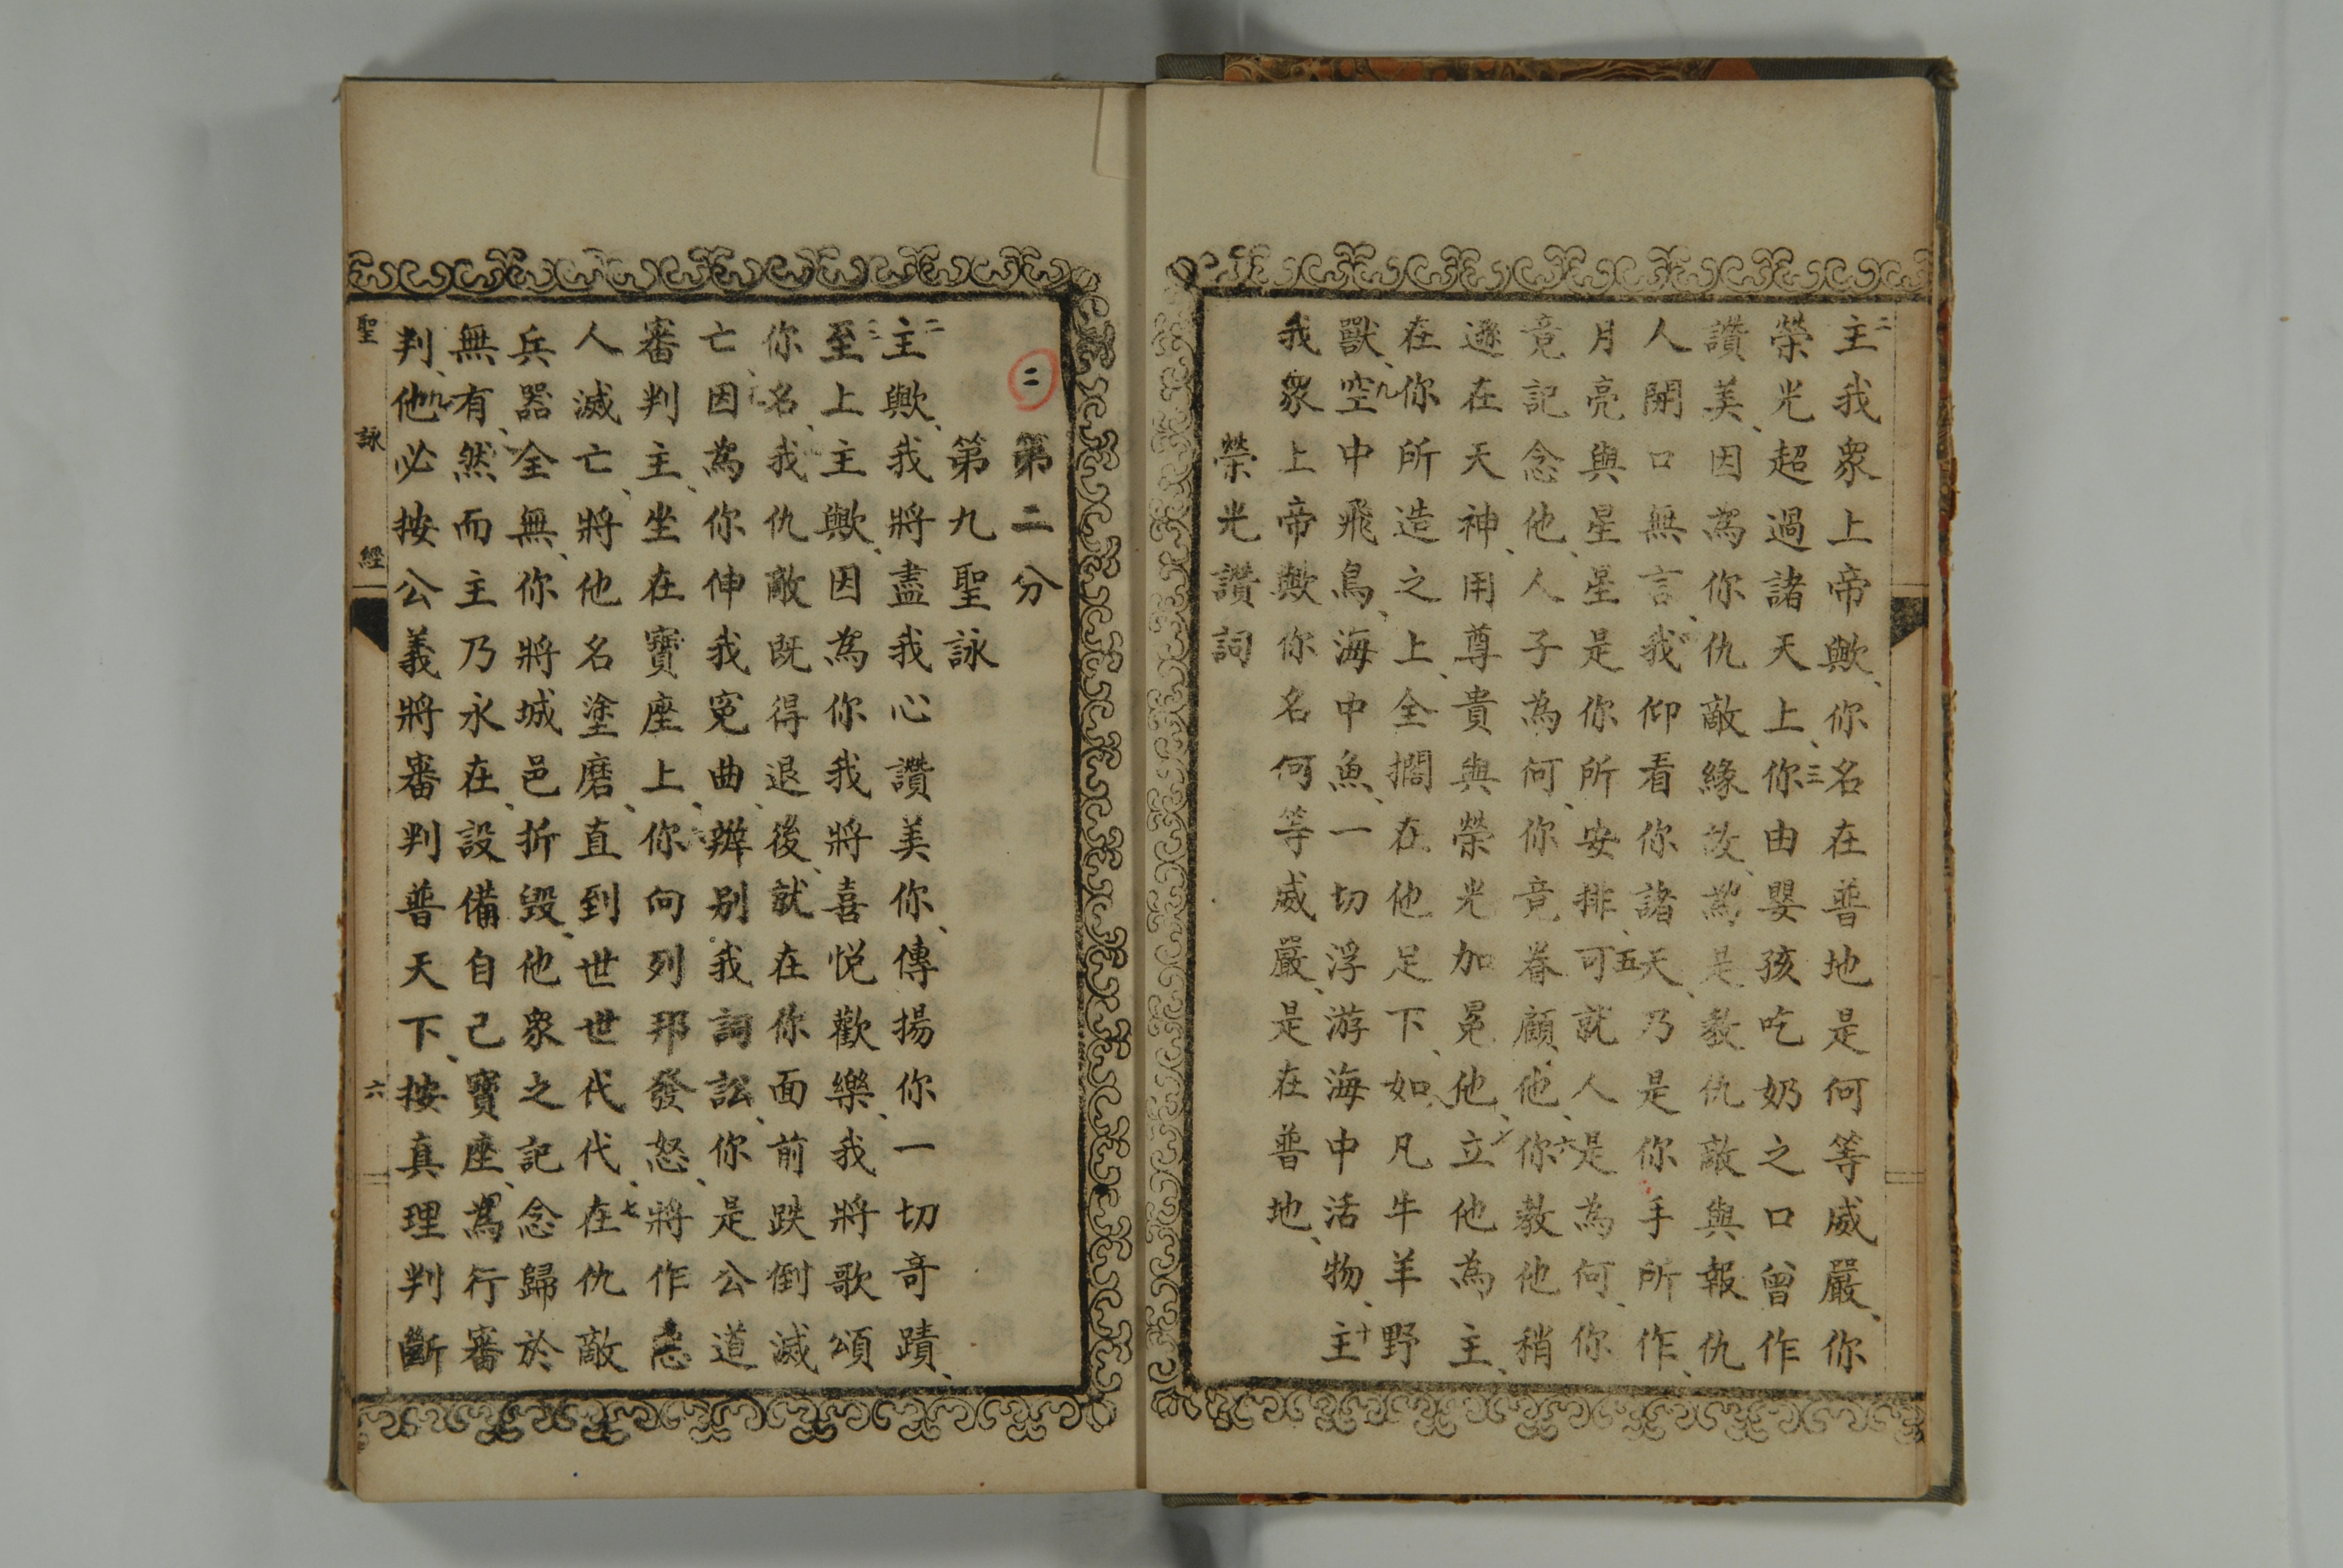 二主我衆上帝歟、你名在普地是何等威嚴、你
榮光超過諸天上、三你由嬰孩吃奶之口曾作
讚美、因為你仇敵緣故、為是教仇敵與報仇
人開口無言、我仰看你諸天、乃是你手所作、
月亮與星星是你所安排、五可就人是為何、你
竟記念他、人子為何、你竟眷顧他、六你教他稍
遜在天神、用尊貴與榮光加冕他、立他為主、
在你所造之上、全擱在他足下、如凡牛羊野
獸、九空中飛鳥、海中魚、一切浮游海中活物、十主
我衆上帝歟你名何等威嚴、是在普地、
榮光讚詞
二
第二分
第九聖詠
二主歟、我將盡我心讚美你、傳揚你一切奇蹟、
三至上主歟、因為你我將喜悅歡樂、我將歌頌
你名、我仇敵既得退後、就在你面前跌倒滅
亡、因為你伸我寃曲、辨别我詞訟、你是公道
審判主、坐在寶座上、你向列邦發怒、將作惡
人滅亡、將他名塗磨、直到世世代代、七在仇敵
兵器全無、你將城邑折毀、他衆之記念歸於
無有、然而主乃永在、設備自己寶座、為行審
判、九他必按公義將審判普天下、按真理判斷
聖詠經
六